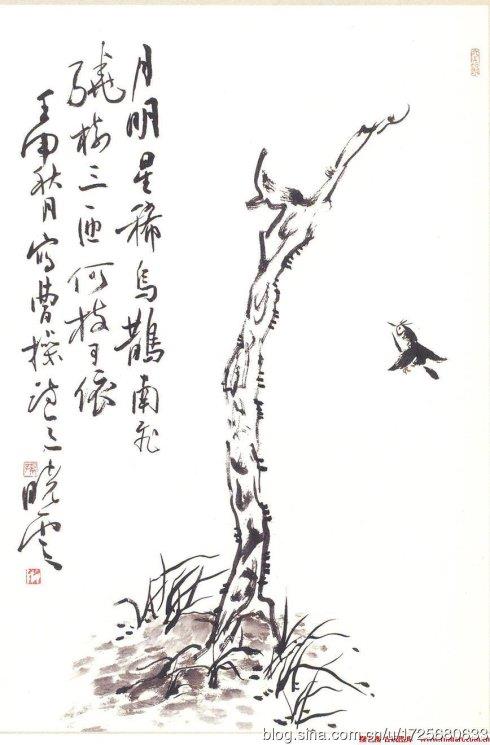 月明星稀烏鵲南飛
繞樹三匝何枝可依
壬申秋月寫曹操詩意
曉雲
blog.sina.com.cn/u/1725680633